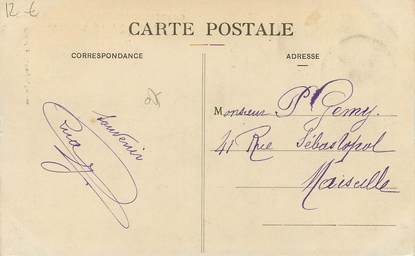 12 €
CARTE POSTALE
CORRESPONDANCE
ADRESSE
Souvenir
Monsieur P. Gemy.
41 Rue Sébastopol
Marseille